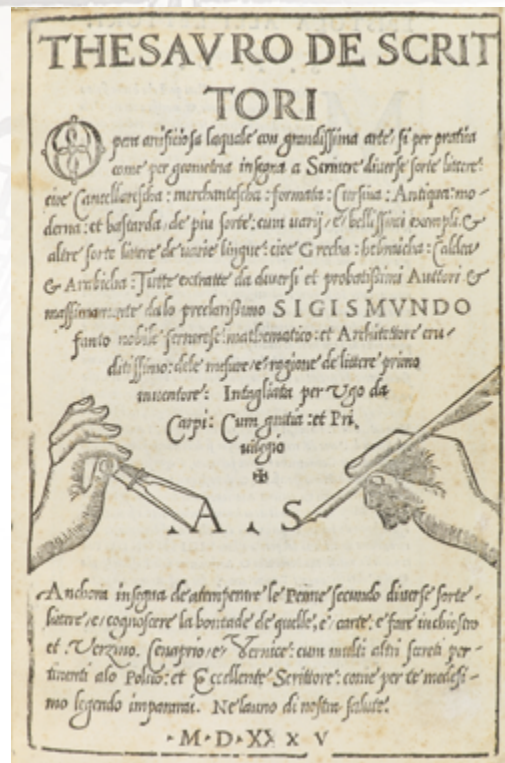 THESAVRO DE SCRIT
TORI
Opera artificiosa laquale con grandissima arte, si per pratica
come per geometria insegna a Scrivere diverse sorte littere:
cioe Cancellarescha: merchantescha: formata: Cursiva: Antiqua: mo-
derna: et bastarda de piu sorte: cum varij, e bellissimi exempli. &
altre sorte littere de varie lingue: cioe Grecha: hebraicha: Caldea
& Arabicha: Tutte extratte da diversi et probatissimi Auttori &
massimamente dalo preclarissimo SIGISMVNDO
fanto nobile ferrarese: mathematico: et Architettore eru-
ditissimo: dele mesure, e ragione de littere primo
inventore: Intagliata per Ugo da
Carpi: Cum gratia: et Pri,
vilegio
✠
.A . S
Anchora insegna de atemperare le Penne secundo diverse sorte
littere, e cognoscere la bontade de quelle, e carte: e fare inchiostro
et Verzino. Cenaprio, e Vernice: cum multi altri secreti per-
tinenti alo Polito: et Eccellente Scrittore: come per te medesi-
mo legendo impararai. Ne lanno di nostra salute.
·M·D·XX x V